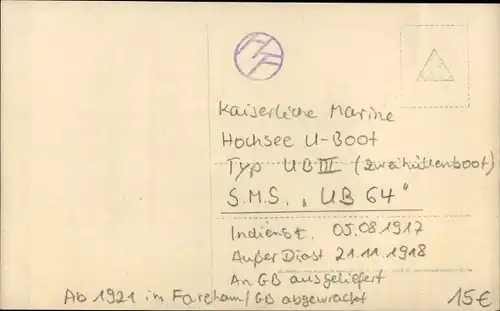 Kaiserliche Marine
Hochsee U-Boot
Typ UB III (Zweihüllenboot)
S.M.S. „UB 64"
Indienst. 05.08.1917
Außer Dinst 21.11.1918
An GB ausgeliefert
Ab 1921 in Fareham/GB abgewrackt
15€